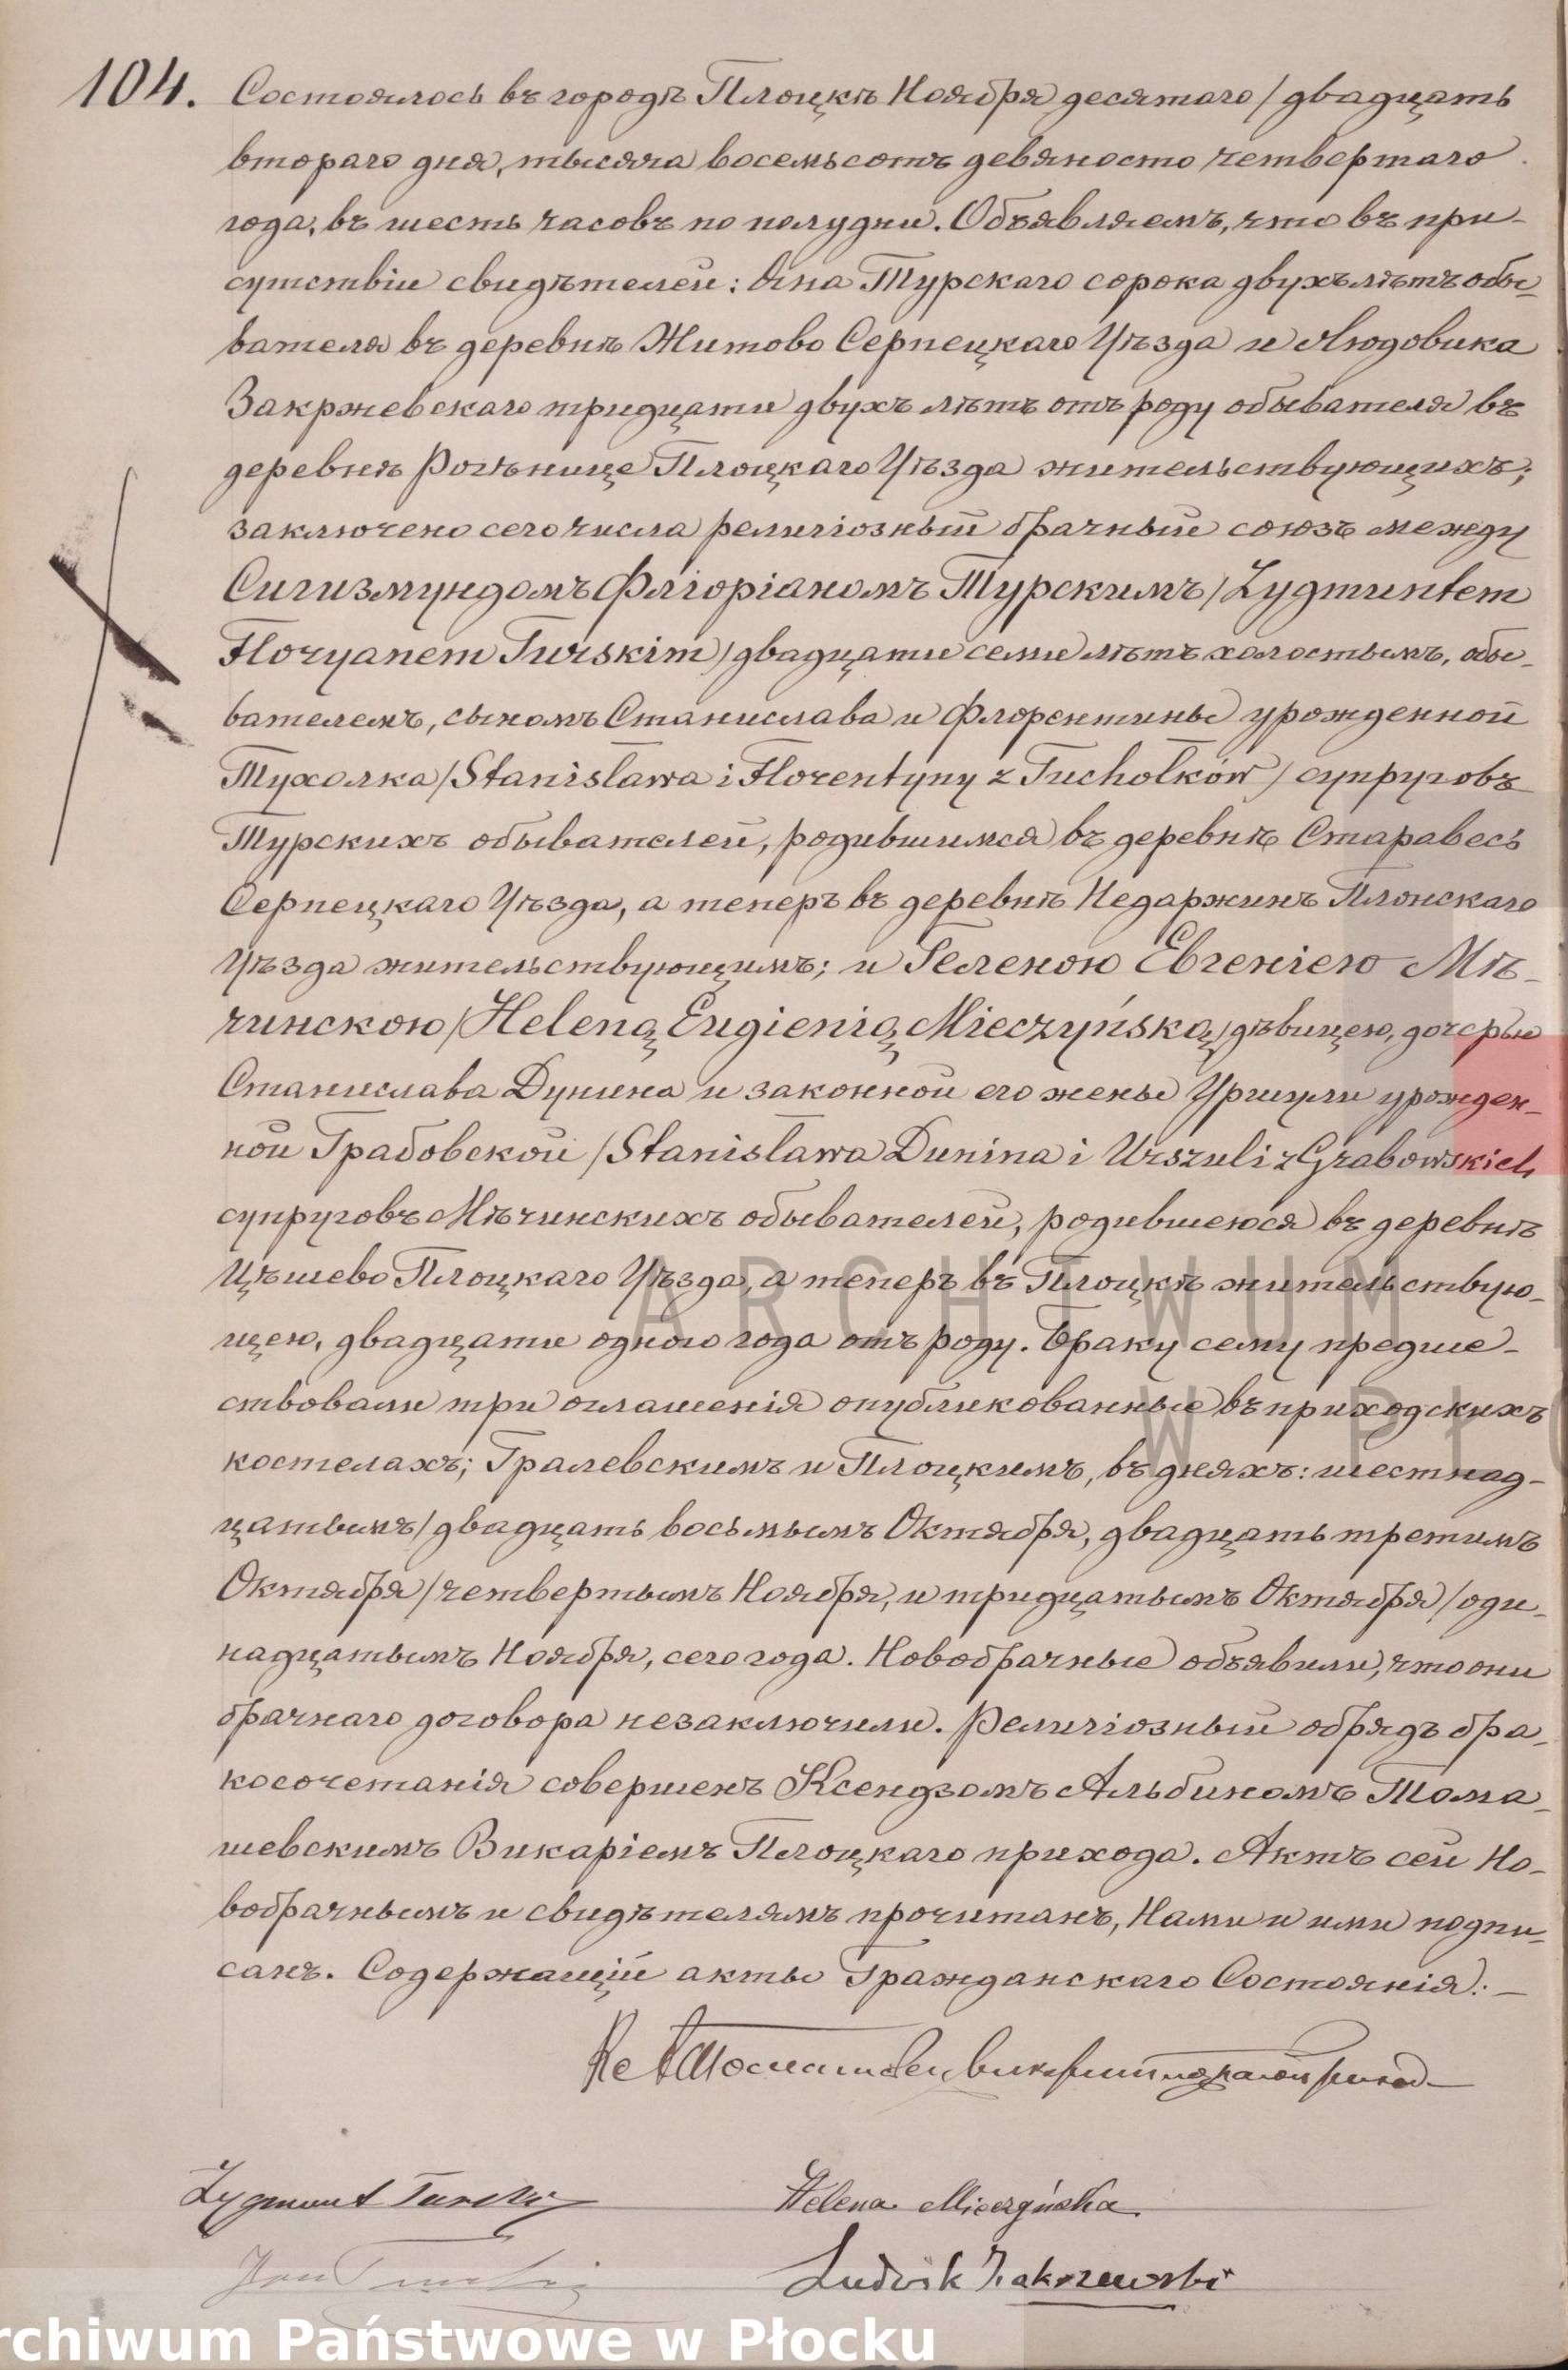 104. Состоялось въ городѣ Плоцкѣ Ноября десятаго / двадцать
втораго дня, тысяча восемьсотъ девяносто четвертаго
года, въ шесть часовъ по полудни. Объявляемъ, что въ при-
сутствіи свидѣтелей: Яна Турскаго сорока двухъ лѣтъ обы-
вателя въ деревнѣ Житово Серпецкаго Уѣзда и Людовика
Закржевскаго тридцати двухъ лѣтъ отъ роду обывателя въ
деревнѣ Рогѣнице Плоцкаго Уѣзда жительствующихъ;
заключено сего числа религіозный брачный союзъ между
Сигизмундомъ Фліоріаномъ Турскимъ / Zygmuntem
Floryanem Turskim / двадцати семи лѣтъ холостымъ, обы-
вателемъ, сыномъ Станислава и Флорентины урожденной
Тухолка / Stanisława i Florentyny z Tuchołków / супруговъ
Турскихъ обывателей, родившимся въ деревнѣ Старавесь
Серпецкаго Уѣзда, а теперъ въ деревнѣ Недаржинъ Плонскаго
Уѣзда жительствующимъ; и Геленою Евгеніею Мѣ-
чинскою / Heleną Eugienią Mieczyńską / дѣвицею, дочерью
Станислава Дунина и законной его жены Уршули урожден-
ной Грабовской / Stanisława Dunina i Urszuli z Grabowskich
супруговъ Мѣчинскихъ обывателей, родившеюся въ деревнѣ
Цѣшево Плоцкаго Уѣзда, а теперъ въ Плоцкѣ жительствую-
щею, двадцати одного года отъ роду. Браку сему предше-
ствовали три оглашенія опубликованные въ приходскихъ
костелахъ; Гралевскимъ и Плоцкимъ, въ дняхъ: шестнад-
цатымъ / двадцать восьмымъ Октября, двадцать третимъ
Октября / четвертымъ Ноября, и тридцатымъ Октября / оди-
надцатымъ Ноября, сего года. Новобрачные объявили, что они
брачнаго договора незаключили. Религіозный обрядъ бра-
косочетанія совершенъ Ксендзомъ Альбиномъ Тома-
шевскимъ Викаріемъ Плоцкаго прихода. Актъ сей Но-
вобрачнымъ и свидѣтелямъ прочитанъ, Нами и ими подпи-
санъ. Содержащій акты Гражданскаго Состоянія:—
Zygmunt Turski Helena Mieczyńska
Jan Turski Ludwik Zakrzewski
ARCHIWUM
W PŁO
rchiwum Państwowe w Płocku